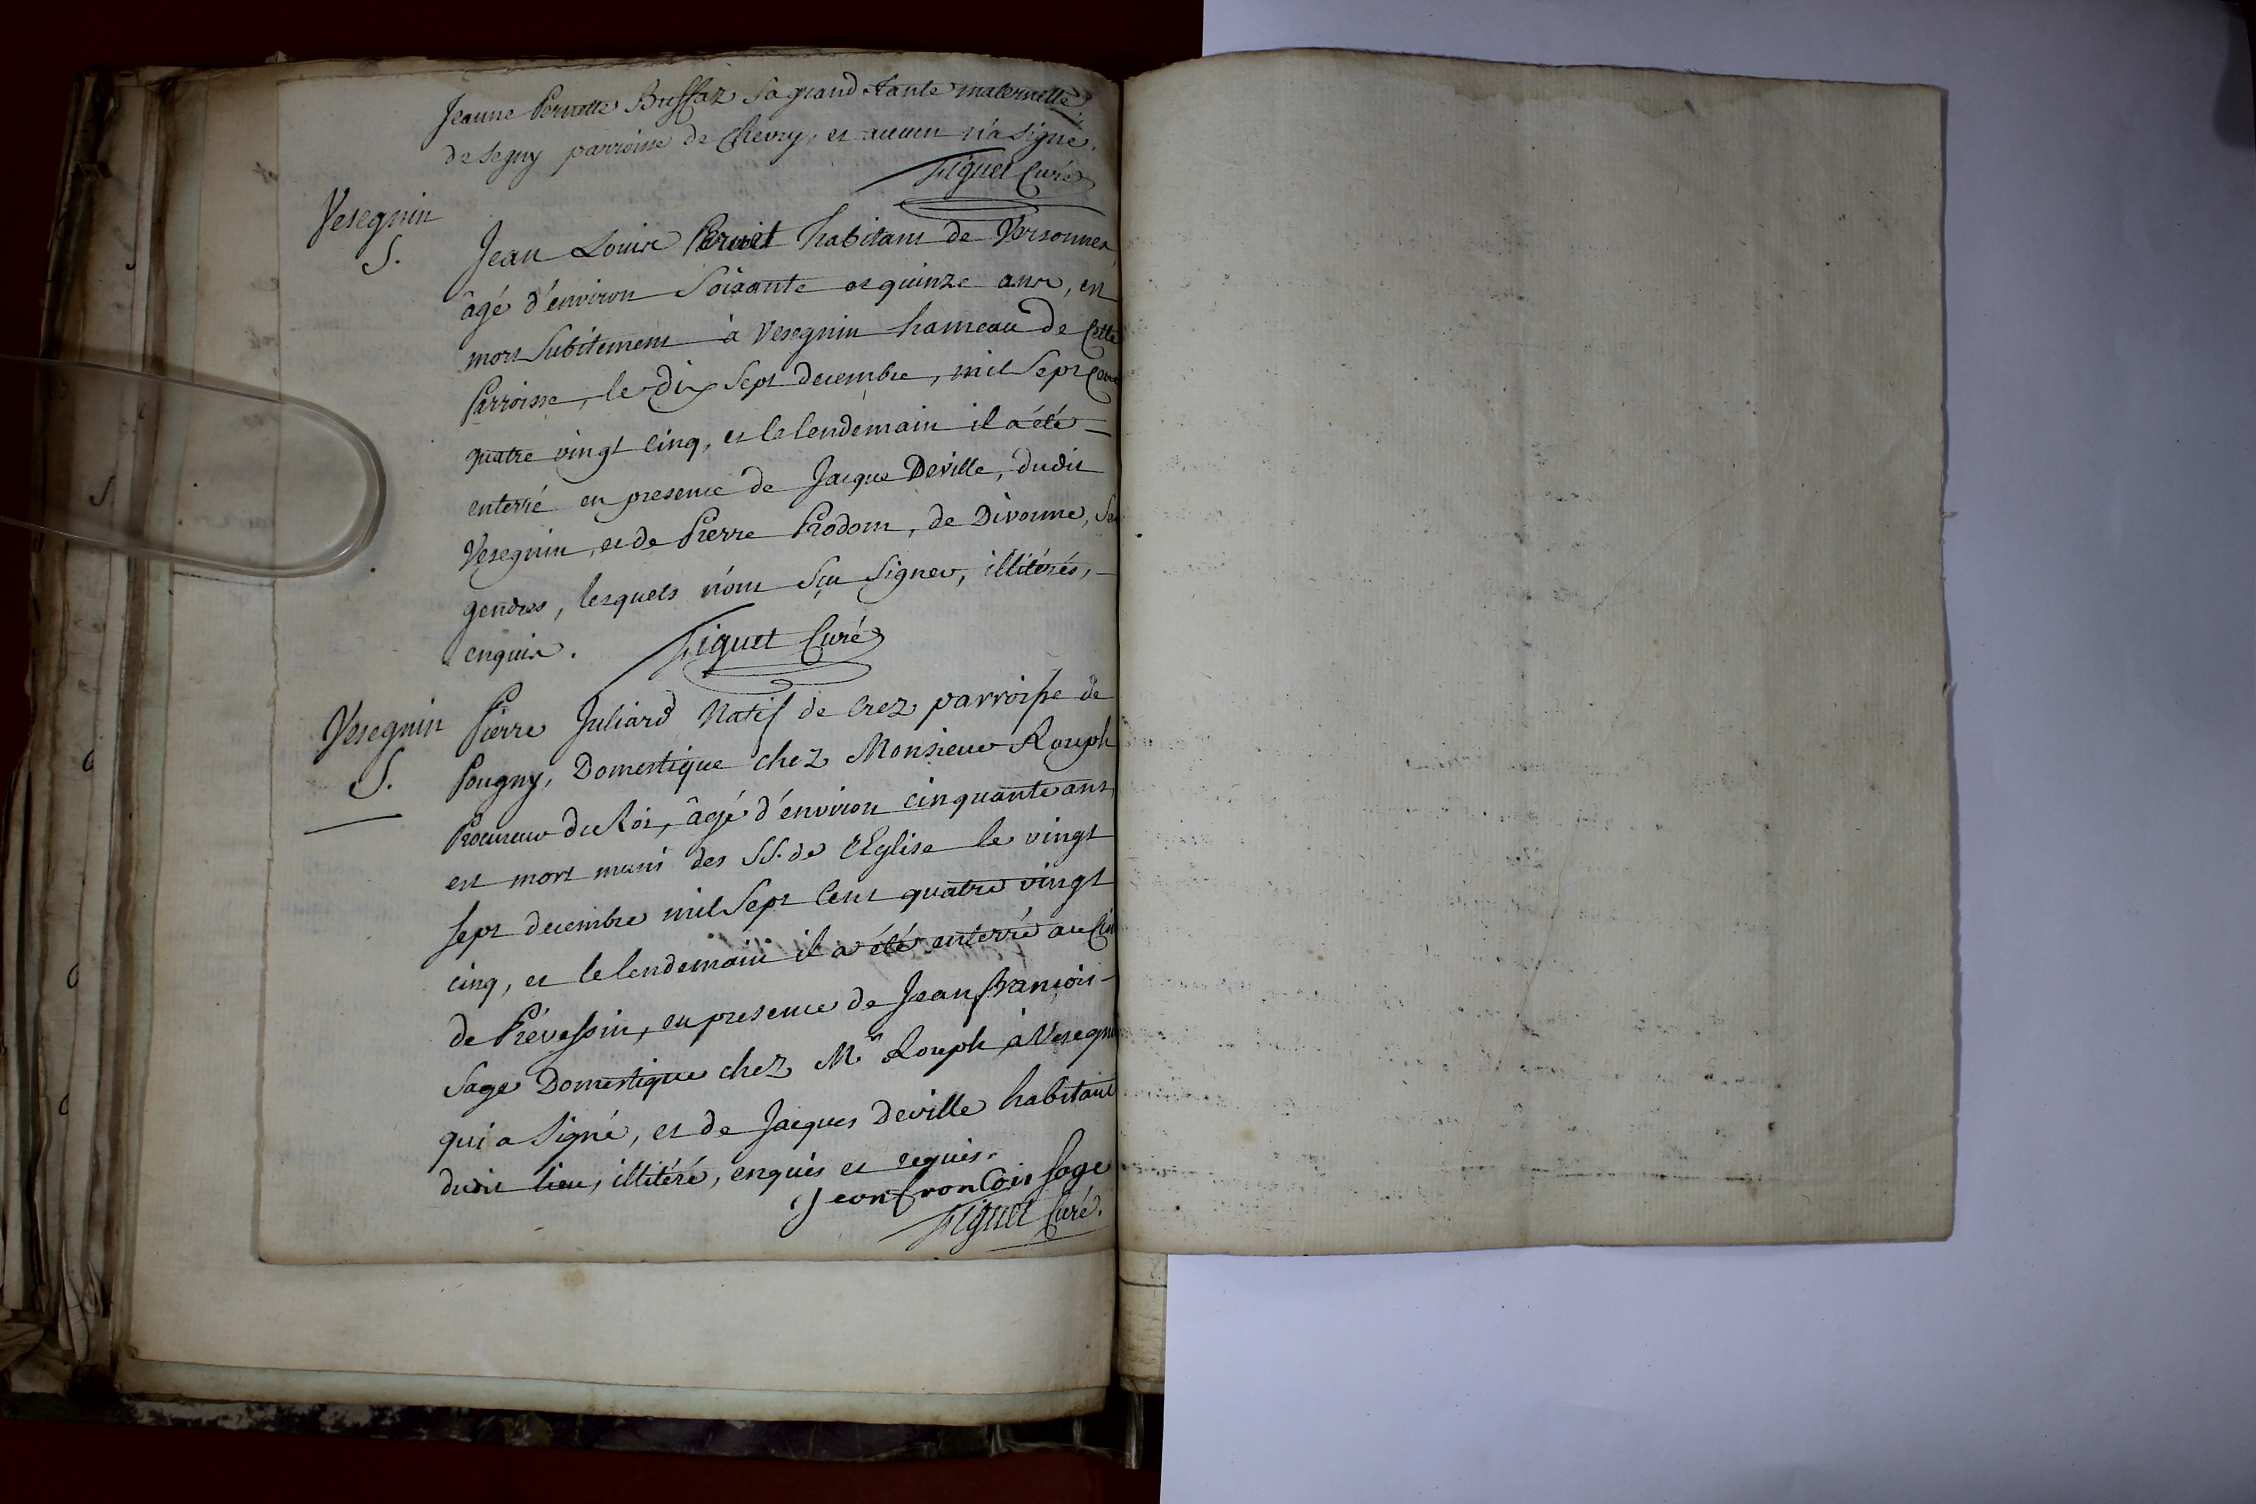 Jeanne Pernette Buffaz sa grand tante maternelle
de Segny parroisse de Chevry, et aucun n'a signé.
Figuet Curé
Vesegnin
S.
Jean Louis Perret habitant de Versonnex,
âgé d'environ Soixante et quinze ans, est
mort Subitement à Vesegnin hameau de Cette
Parroisse, le dix Sept decembre, mil Sept Cent
quatre vingt Cinq, et le lendemain il a été
enterré en presence de Jacque Deville, dudit
Vesegnin, et de Pierre Prodom, de Divonne, Ses
gendres, lesquels n'ont Sçu Signer, illitérés,
enquis.
Figuet Curé
Vesegnin
S.
Pierre Juliard Natif de Crez parroisse de
Pougny, Domestique chez Monsieur Rouph
Procureur du Roi, âgé d'environ cinquante ans
est mort muni des SS. de l'Eglise le vingt
sept decembre mil Sept Cent quatre vingt
cinq, et le lendemain il a été enterré au Cim
de Prévessin, en presence de Jean françois
Sage Domestique chez Mr Rouph à Vesegnin
qui a Signé, et de Jacques Deville habitant
dudit lieu, illitéré, enquis et requis.
Jean froncois Sage
Figuet Curé.